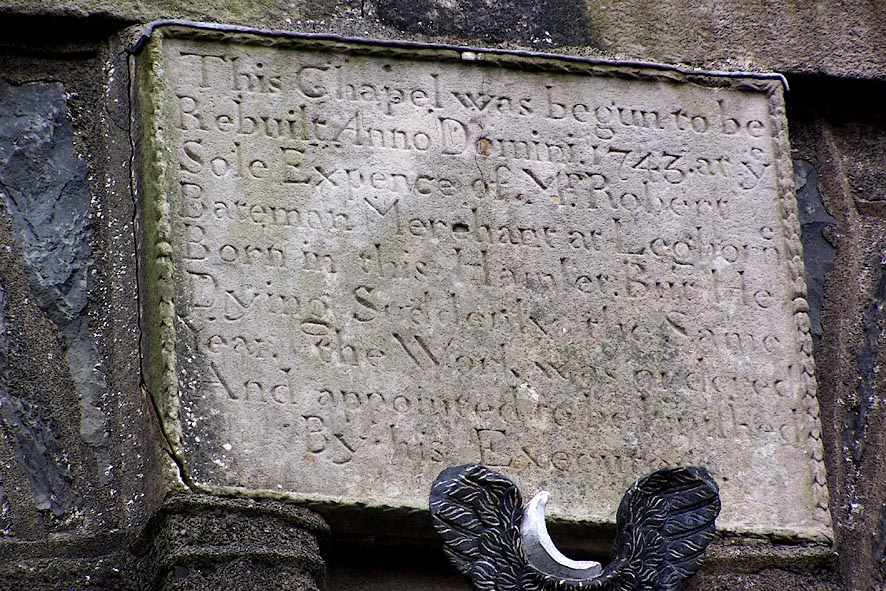 This Chapel was begun to be
Rebuilt Anno Domini. 1743. at yᵉ
Sole Expence of Mʳ Robert
Bateman Merchant at Leghorn
Born in this Hamlet. But He
Dying Suddenly the Same
Year. The Work was ordered
And appointed to be finished
By his Executors